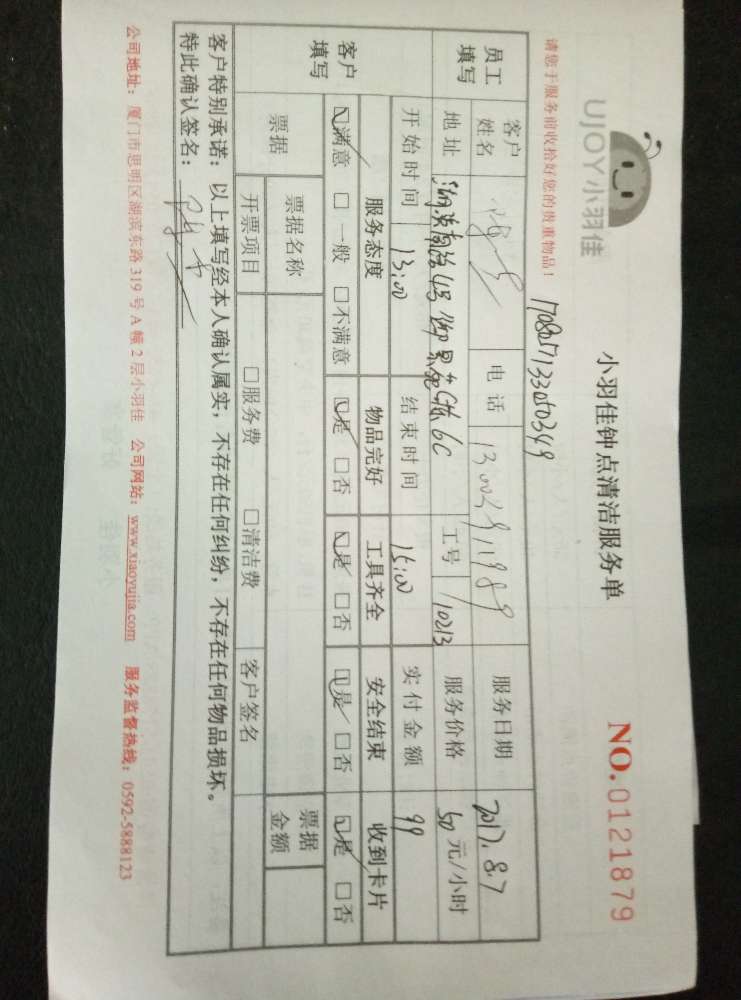 UJOY小羽佳
小羽佳钟点清洁服务单
NO.0121879
请您于服务前收拾好您的贵重物品！
170805133050349
员工填写 客户姓名 电话 服务日期 2017.8.7
地址 工号 10213 服务价格 50 元/小时
开始时间 13:00 结束时间 15:00 实付金额 99
客户填写 服务态度 物品完好 工具齐全 安全结束 收到卡片
☑满意 □一般 □不满意 ☑是 □否 ☑是 □否 ☑是 □否 ☑是 □否
票据 票据名称 票据金额
开票项目 □服务费 □清洁费 客户签名
客户特别承诺：以上填写经本人确认属实，不存在任何纠纷，不存在任何物品损坏。
特此确认签名：
公司地址：厦门市思明区湖滨东路 319 号 A 幢 2 层小羽佳 公司网站：www.xiaoyujia.com 服务监督热线：0592-5888123